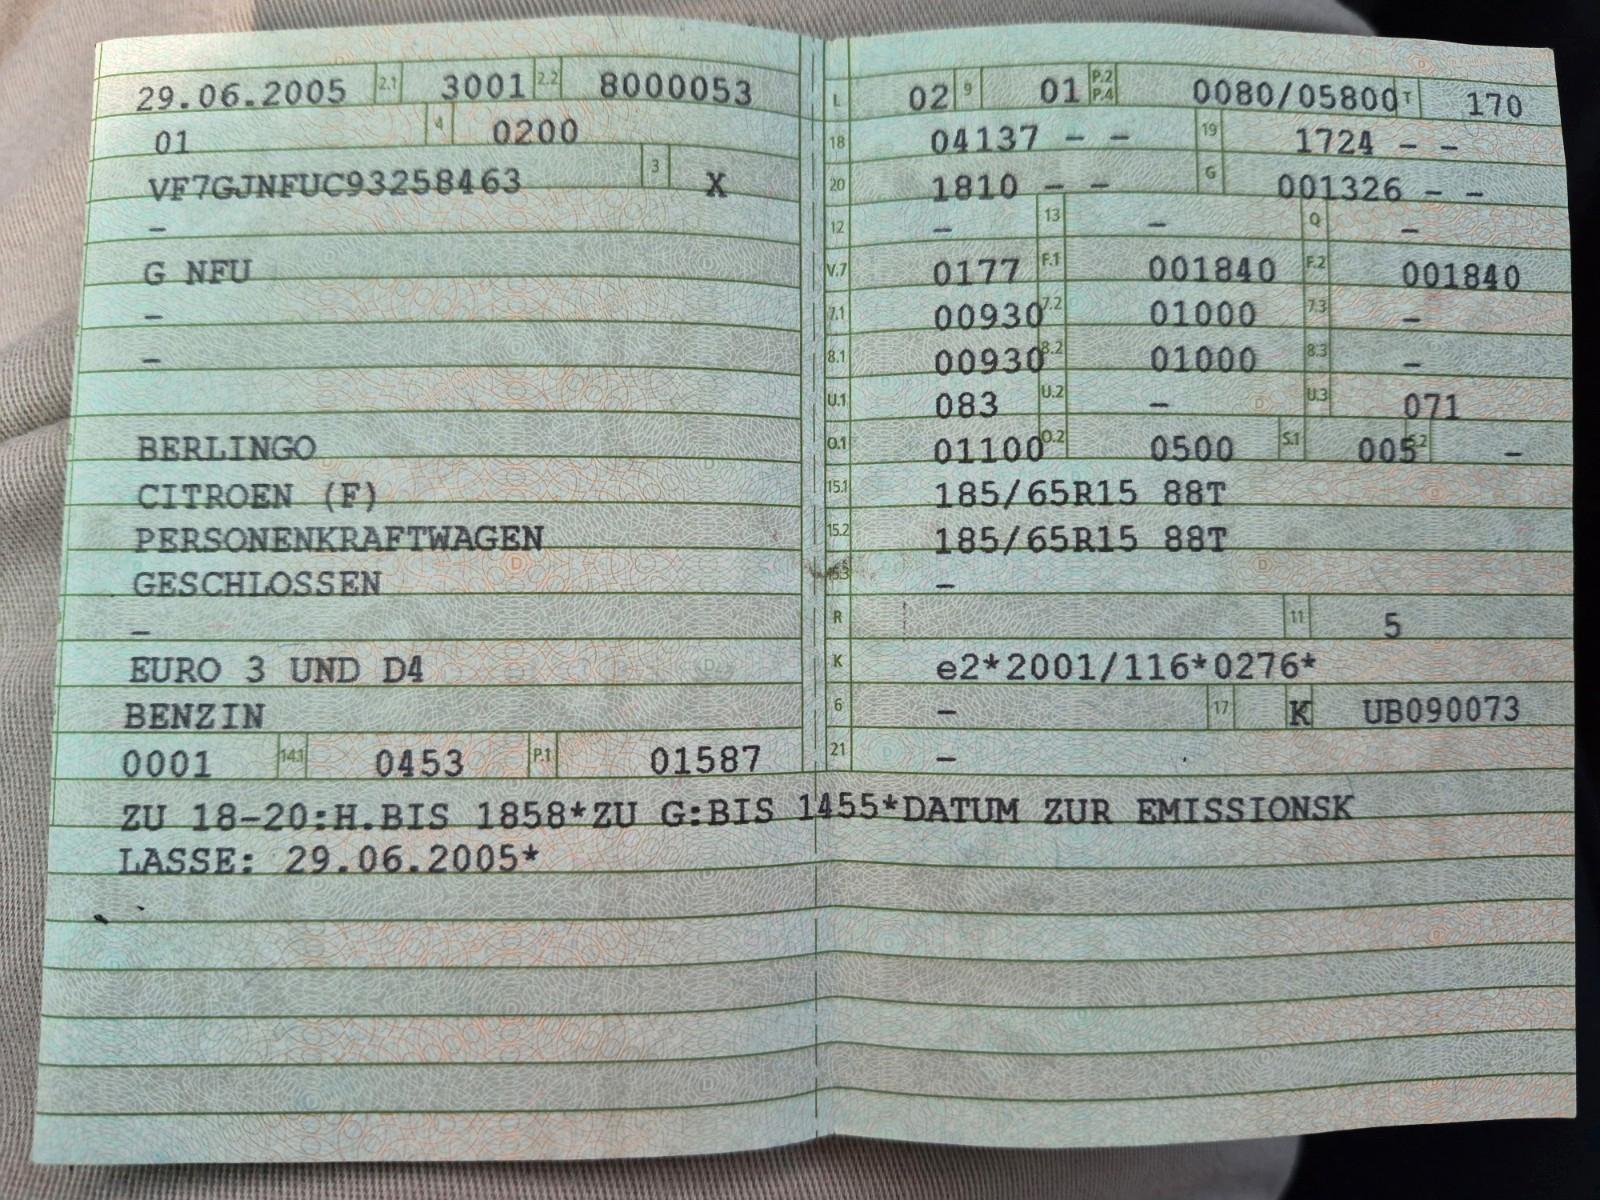 29.06.2005 2.1 3001 2.2 8000053
01 4 0200
VF7GJNFUC93258463 3 X
–
G NFU
–
–
BERLINGO
CITROEN (F)
PERSONENKRAFTWAGEN
GESCHLOSSEN
–
EURO 3 UND D4
BENZIN
0001 14.1 0453 P.1 01587
L 02 9 01 P.2 P.4 0080/05800 T 170
18 04137 – – 19 1724 – –
20 1810 – – G 001326 – –
12 – 13 – Q –
V.7 0177 F.1 001840 F.2 001840
7.1 00930 7.2 01000 7.3 –
8.1 00930 8.2 01000 8.3 –
U.1 083 U.2 – U.3 071
O.1 01100 O.2 0500 S.1 005 S.2 –
15.1 185/65R15 88T
15.2 185/65R15 88T
15.3 –
R 11 5
K e2*2001/116*0276*
6 – 17 K UB090073
21 –
ZU 18-20:H.BIS 1858*ZU G:BIS 1455*DATUM ZUR EMISSIONSK
LASSE: 29.06.2005*